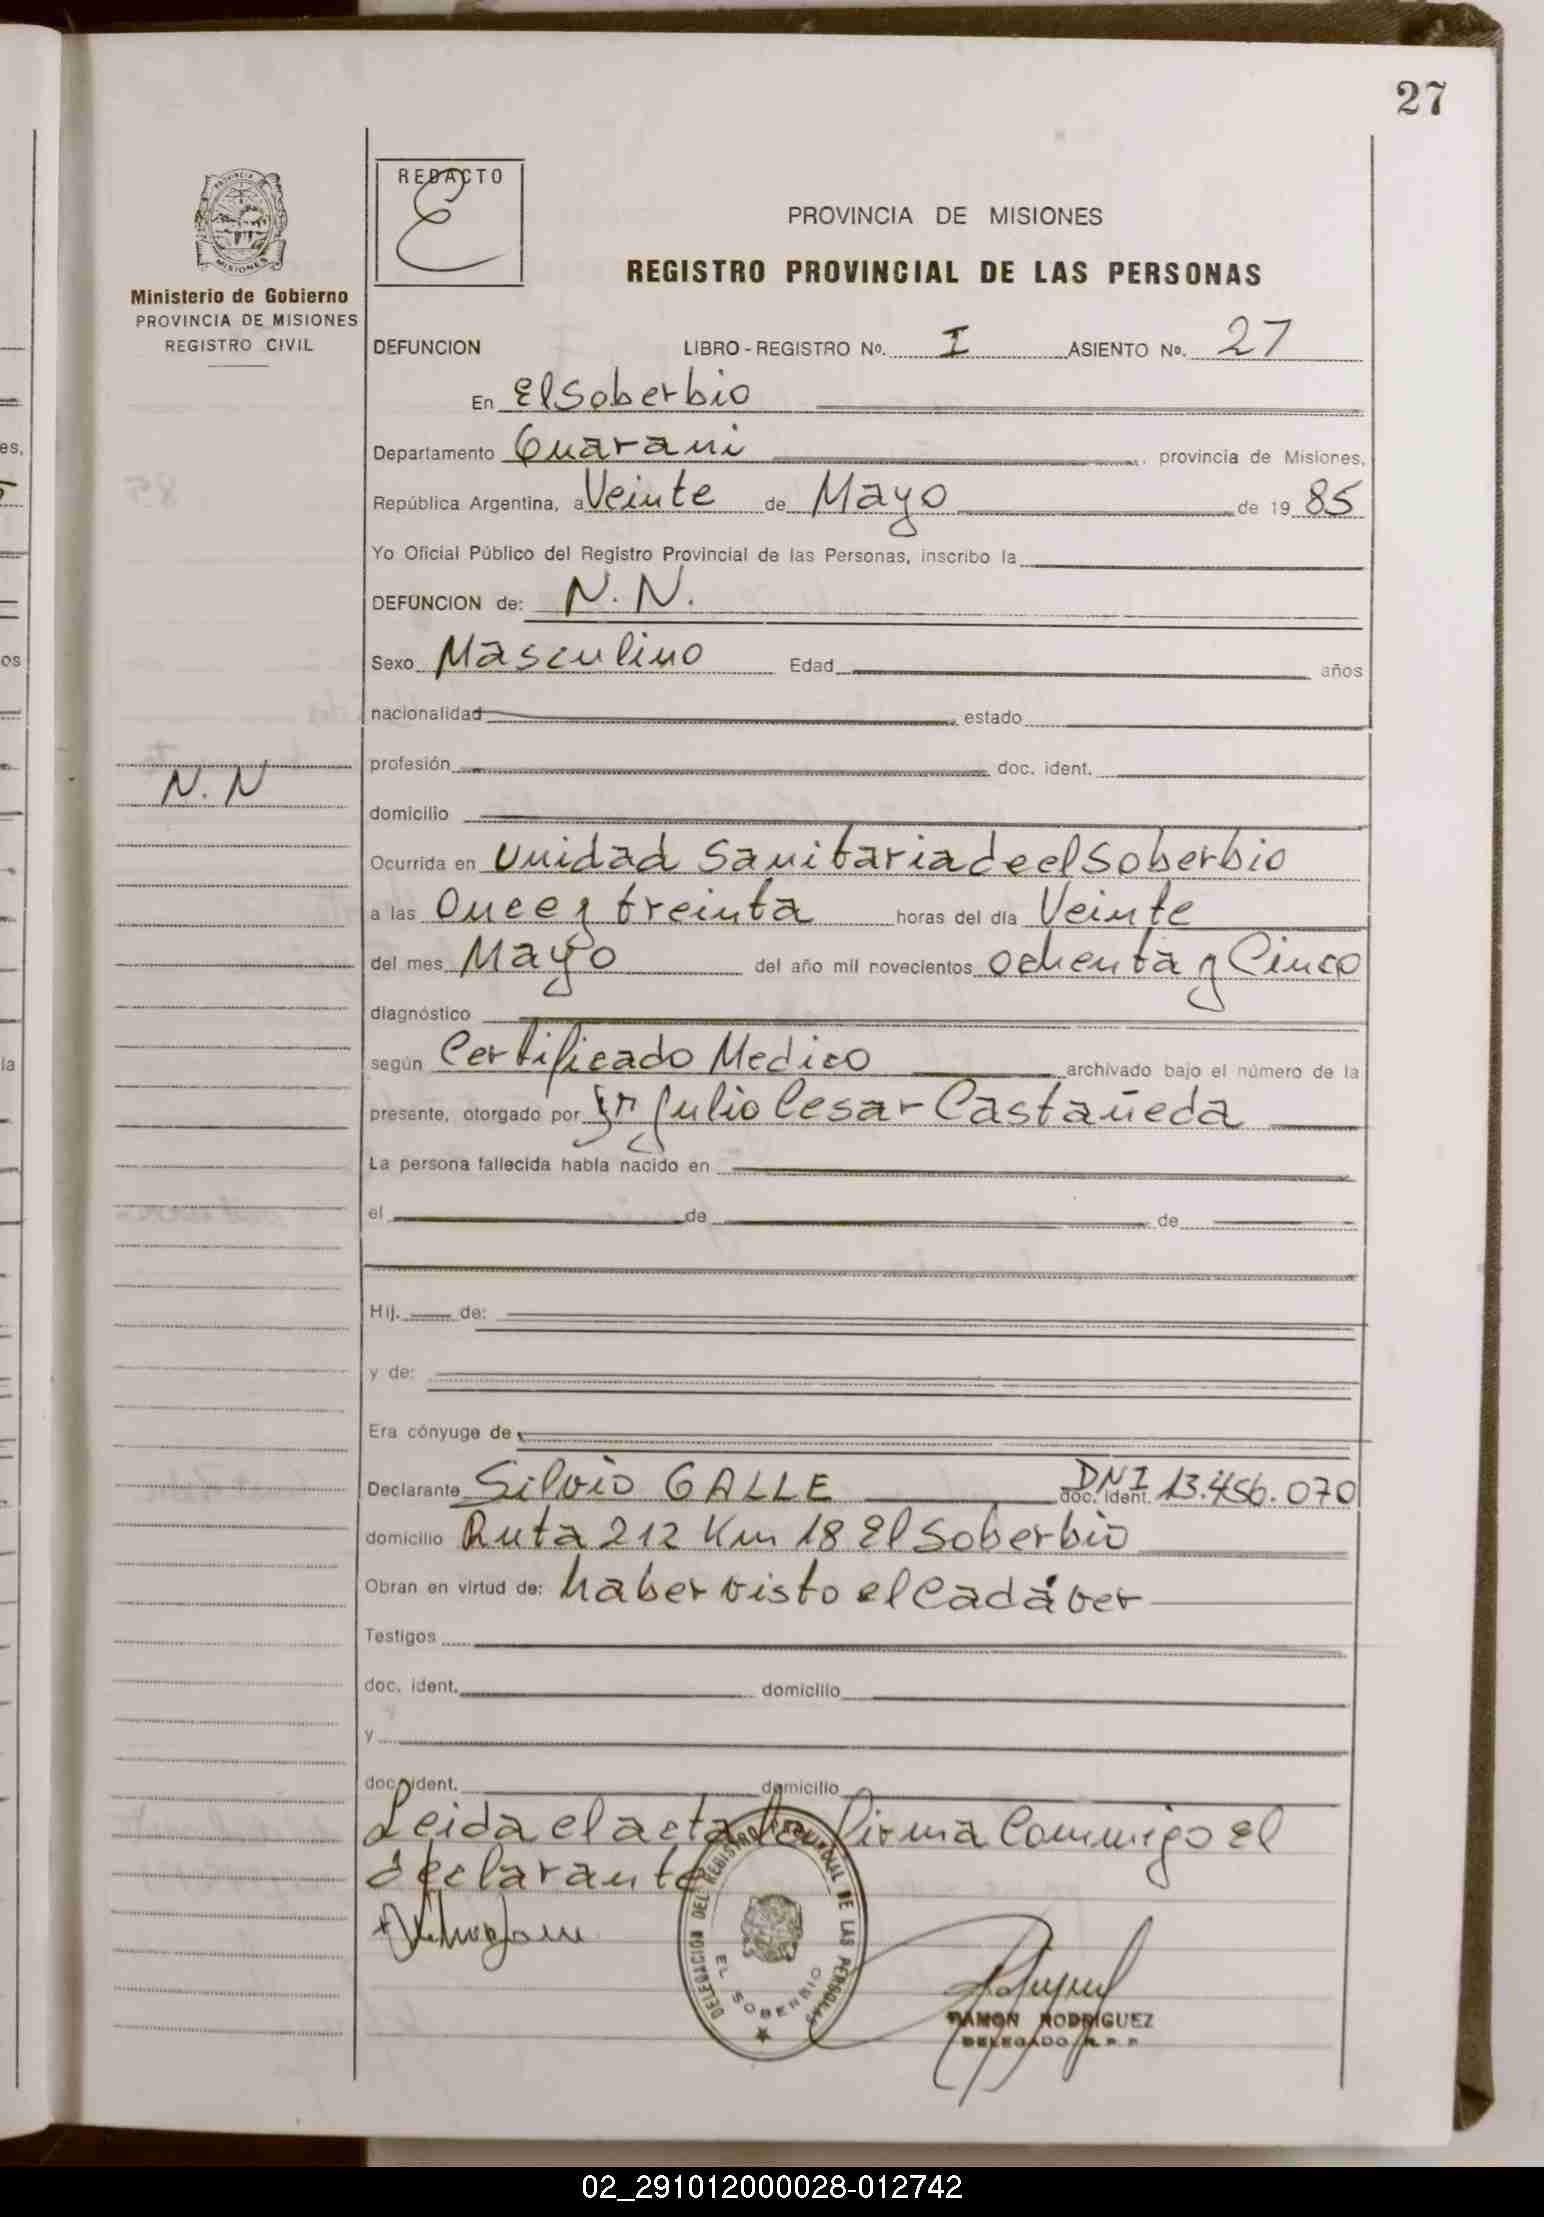 27
PROVINCIA
MISIONES
Ministerio de Gobierno
PROVINCIA DE MISIONES
REGISTRO CIVIL
REDACTO
PROVINCIA DE MISIONES
REGISTRO PROVINCIAL DE LAS PERSONAS
DEFUNCION LIBRO-REGISTRO Nº. I ASIENTO Nº. 27
En El Soberbio
Departamento Guarani, provincia de Misiones,
República Argentina, a Veinte de Mayo de 19 85
Yo Oficial Público del Registro Provincial de las Personas, inscribo la
DEFUNCION de: N. N.
Sexo Masculino Edad años
nacionalidad estado
profesión doc. ident.
N. N
domicilio
Ocurrida en Unidad Sanitaria de el Soberbio
a las Once y treinta horas del día Veinte
del mes Mayo del año mil novecientos ochenta y Cinco
diagnóstico
según Certificado Medico archivado bajo el número de la
presente, otorgado por Julio Cesar Castañeda
La persona fallecida había nacido en
el de de
Hij. de:
y de:
Era cónyuge de
Declarante Silvio GALLE DNI doc. ident. 13.456.070
domicilio Ruta 212 Km 18 El Soberbio
Obran en virtud de: haber visto el Cadáver
Testigos
doc. ident. domicilio
y
doc. ident. domicilio
Leida el acta la firma Conmigo el
declarante
DELEGACION DEL REGISTRO PROVINCIAL DE LAS PERSONAS
EL SOBERBIO
RAMON RODRIGUEZ
DELEGADO R. P. P.
02_291012000028-012742